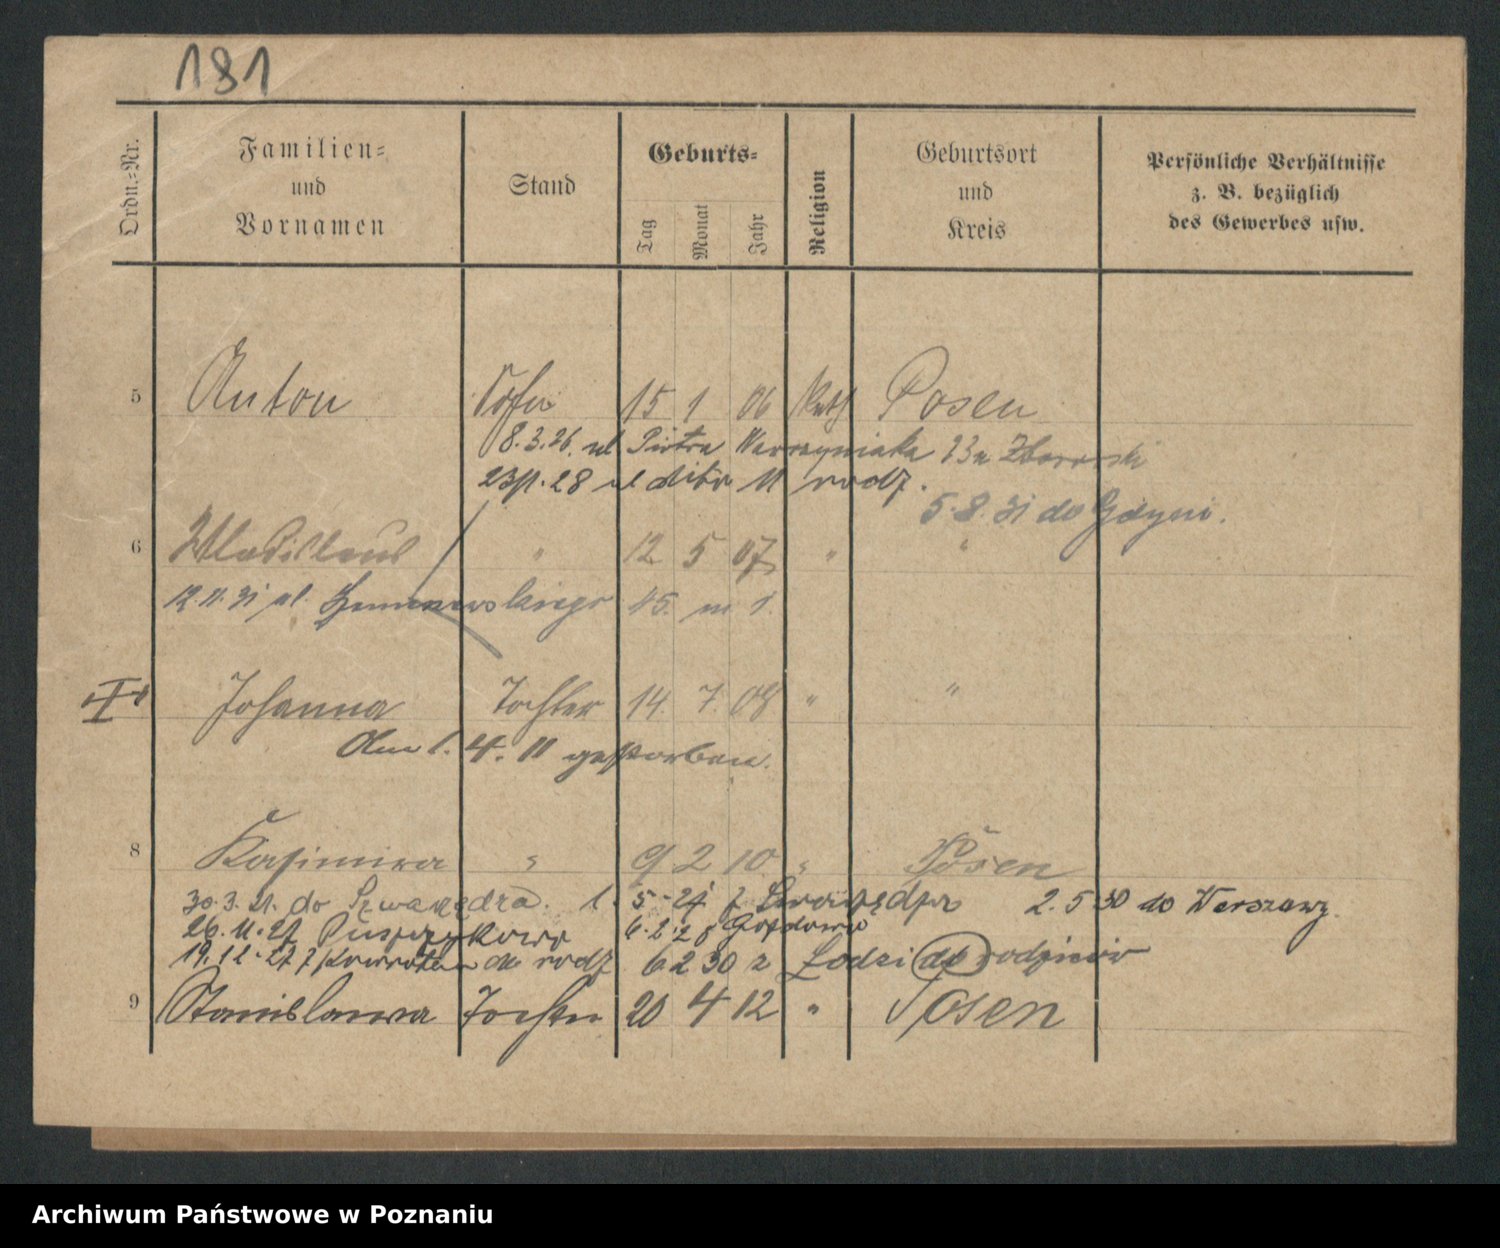 181
Ordn.-Nr.
Familien-
und
Vornamen
Stand
Geburts-
Tag
Monat
Jahr
Religion
Geburtsort
und
Kreis
Persönliche Verhältnisse
z. B. bezüglich
des Gewerbes usw.
5 Anton Sohn 15 1 06 Kath Posen
8.3.26. ul Piotra Wawrzyniaka 23a
ul 11 rodz.
5.8.31 do Gdyni.
6 Wladislaus " 12 5 07 " "
12.11.31 ul. 45. m 1.
Johanna Tochter 14. 7. 08 " "
Am 1. 4. 11 gestorben.
8 Kasimira " 9 2 10 " Posen
30.3.21. do Swarzędza. 1. 5. 2.5 30 do Warszawy
26.11.27 Puszczykowo
19.12.27 z powrotem do rodz 6 2 30 z Łodzi do rodziców
9 Stanislawa Tochter 20 4 12 " Posen
Archiwum Państwowe w Poznaniu